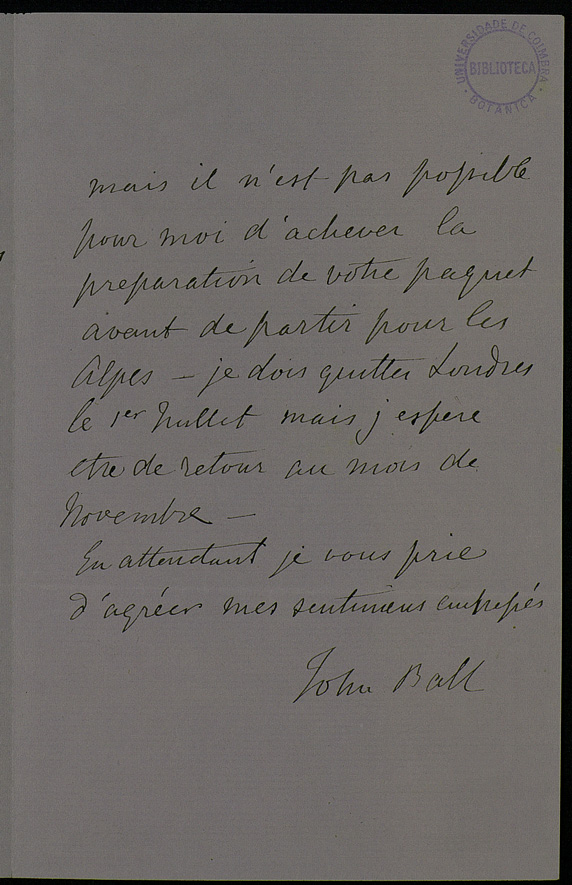 UNIVERSIDADE DE COIMBRA
BIBLIOTECA
BOTANICA
mais il n'est pas possible
pour moi d'achever la
preparation de votre paquet
avant de partir pour les
Alpes – je dois quitter Londres
le 1er Juillet mais j'espere
etre de retour au mois de
Novembre –
En attendant je vous prie
d'agréer mes sentimens empressés
John Ball